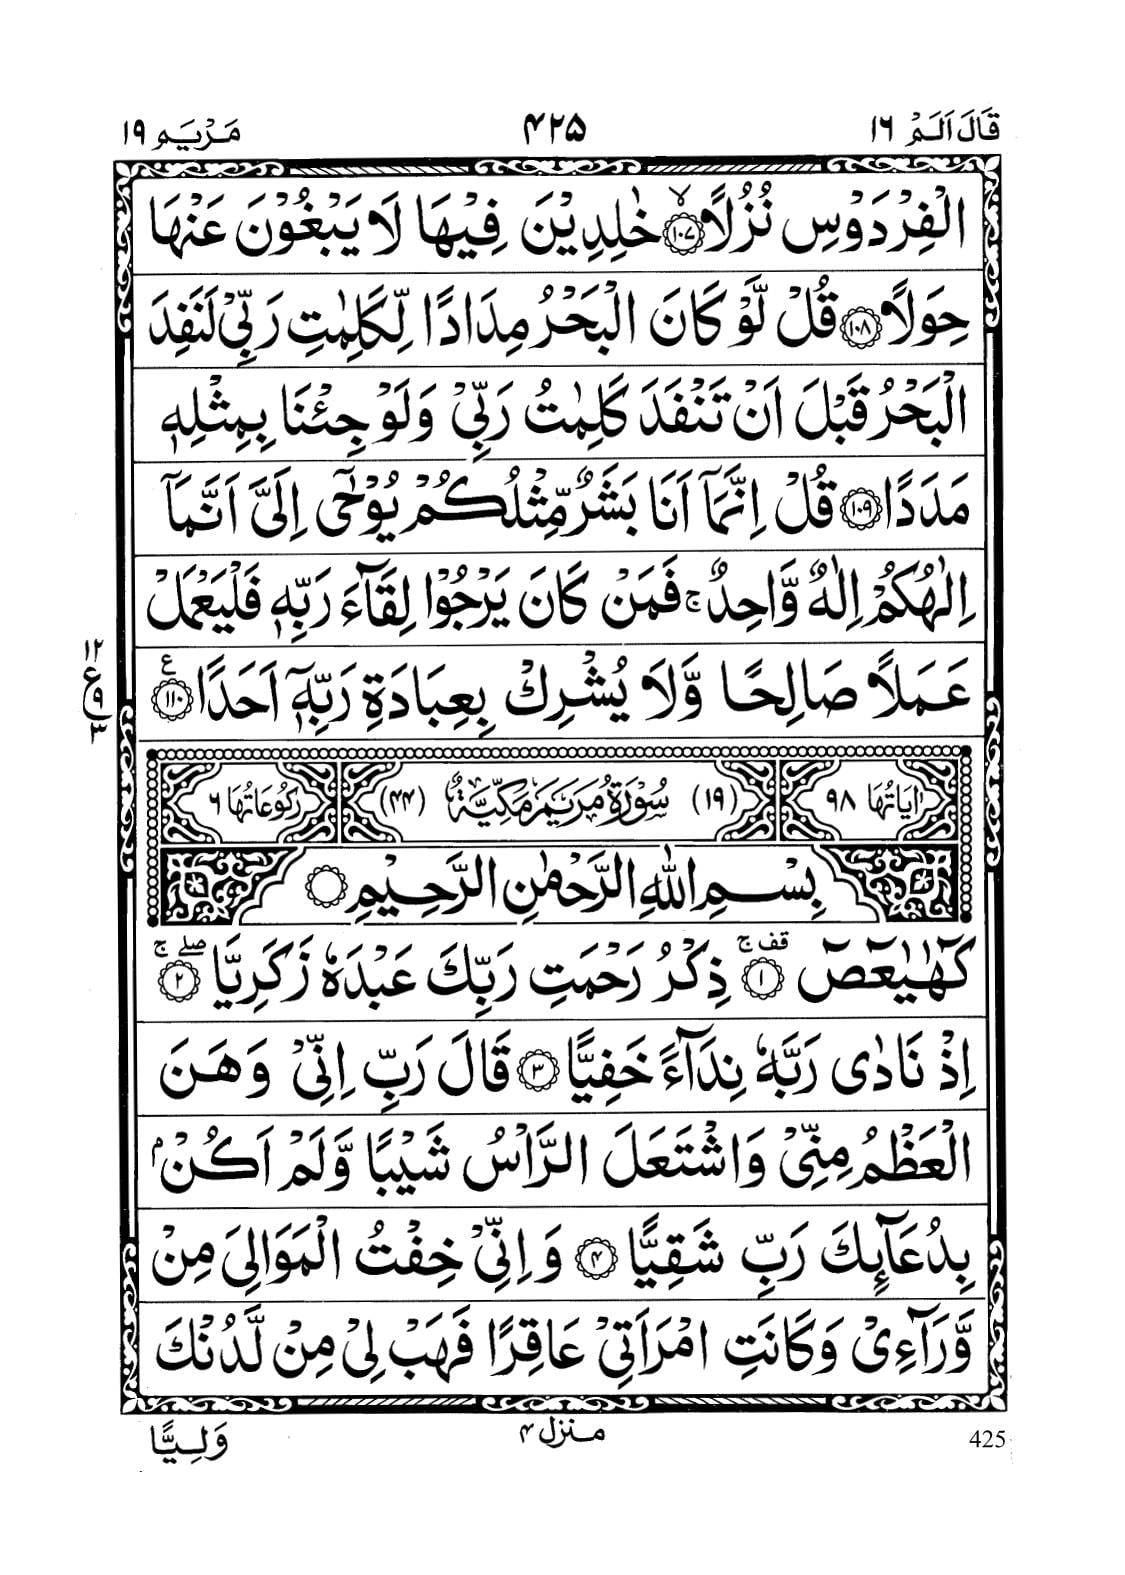 قَالَ اَلَمْ ١٦
۴۲۵
مَرْيَم ١٩
الْفِرْدَوْسِ نُزُلًا ۙ‏﴿١٠٧﴾ خٰلِدِيْنَ فِيْهَا لَا يَبْغُوْنَ عَنْهَا
حِوَلًا ﴿١٠٨﴾ قُلْ لَّوْ كَانَ الْبَحْرُ مِدَادًا لِّكَلِمٰتِ رَبِّيْ لَنَفِدَ
الْبَحْرُ قَبْلَ اَنْ تَنْفَدَ كَلِمٰتُ رَبِّيْ وَلَوْ جِئْنَا بِمِثْلِهٖ
مَدَدًا ﴿١٠٩﴾ قُلْ اِنَّمَاۤ اَنَا بَشَرٌ مِّثْلُكُمْ يُوْحٰۤى اِلَيَّ اَنَّمَاۤ
اِلٰهُكُمْ اِلٰهٌ وَّاحِدٌ ۚ فَمَنْ كَانَ يَرْجُوْا لِقَآءَ رَبِّهٖ فَلْيَعْمَلْ
عَمَلًا صَالِحًا وَّلَا يُشْرِكْ بِعِبَادَةِ رَبِّهٖۤ اَحَدًا ﴿١١٠﴾ ع
١٢
ع
٩
٣
اٰيَاتُهَا ٩٨
(١٩) سُوْرَةُ مَرْيَمَ مَكِّيَّةٌ (۴۴)
رُكُوْعَاتُهَا ٦
بِسْمِ اللهِ الرَّحْمٰنِ الرَّحِيْمِ
كٓهٰيٰعٓصٓ ﴿١﴾ قف ج ذِكْرُ رَحْمَتِ رَبِّكَ عَبْدَهٗ زَكَرِيَّا ﴿٢﴾ صلے ج
اِذْ نَادٰى رَبَّهٗ نِدَآءً خَفِيًّا ﴿٣﴾ قَالَ رَبِّ اِنِّيْ وَهَنَ
الْعَظْمُ مِنِّيْ وَاشْتَعَلَ الرَّاْسُ شَيْبًا وَّلَمْ اَكُنْۢ
بِدُعَآئِكَ رَبِّ شَقِيًّا ﴿۴﴾ وَاِنِّيْ خِفْتُ الْمَوَالِيَ مِنْ
وَّرَآءِيْ وَكَانَتِ امْرَاَتِيْ عَاقِرًا فَهَبْ لِيْ مِنْ لَّدُنْكَ
وَلِيًّا
منزل ۴
425